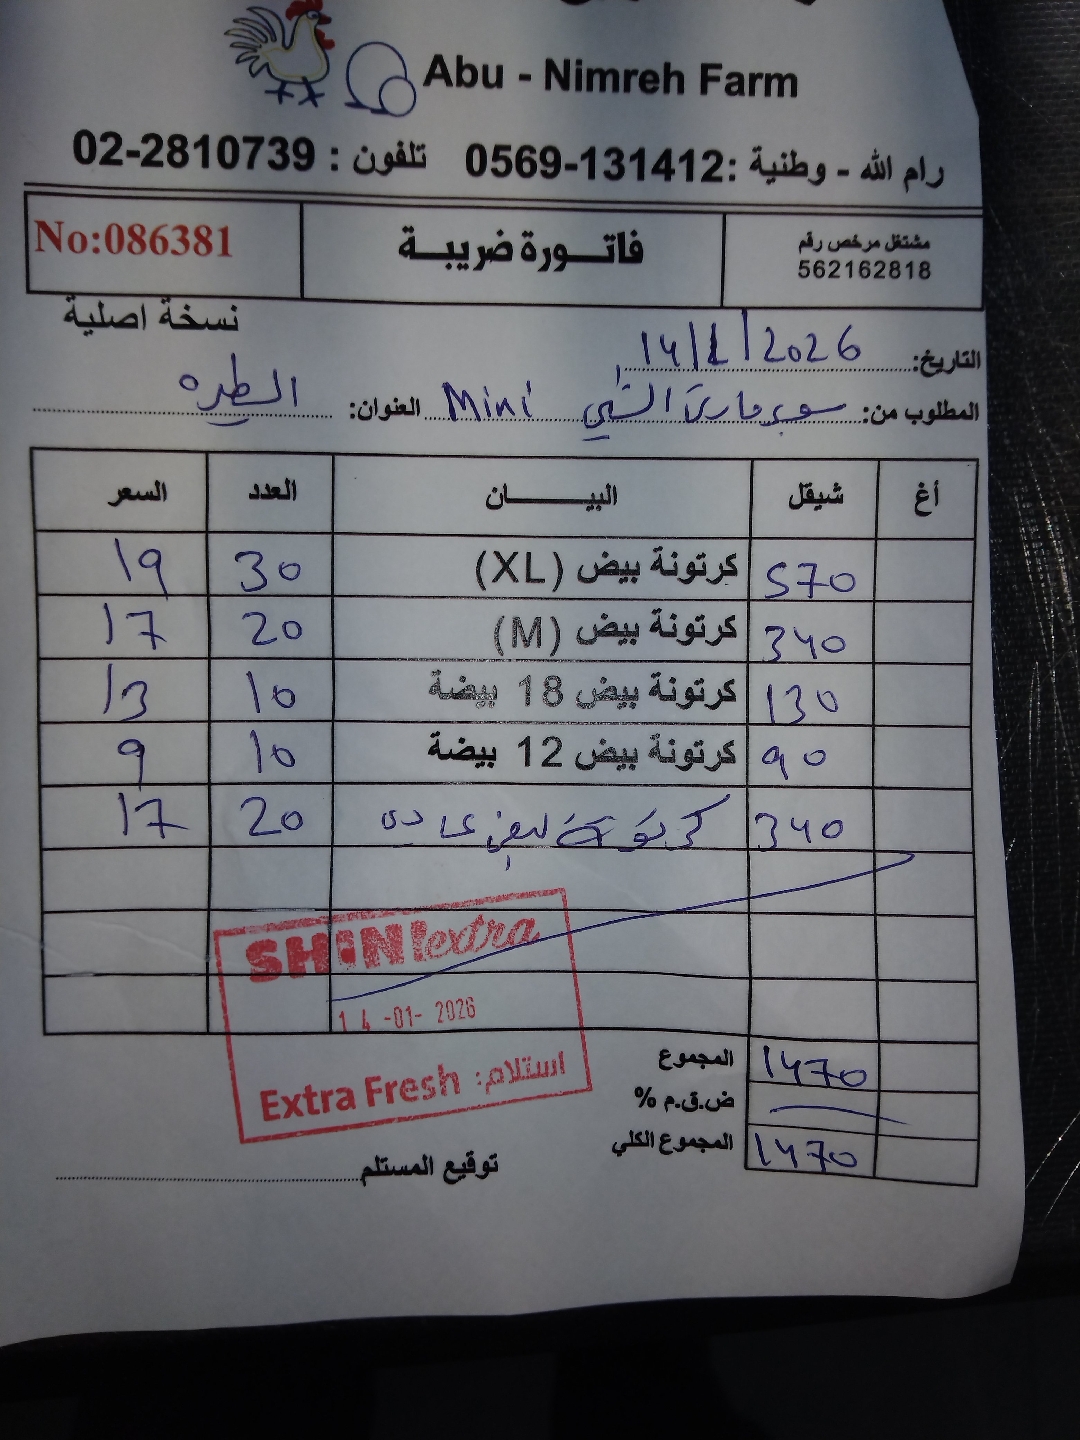 Abu - Nimreh Farm
رام الله - وطنية :0569-131412 تلفون : 02-2810739
مشتغل مرخص رقم
562162818
فاتـــورة ضريبـــة
No:086381
نسخة اصلية
التاريخ: 14/1/2026
المطلوب من: سوبرماركت الشني Mini العنوان: الطيره
أغ شيقل البيـــــــان العدد السعر
570 كرتونة بيض (XL) 30 19
340 كرتونة بيض (M) 20 17
130 كرتونة بيض 18 بيضة 10 13
90 كرتونة بيض 12 بيضة 10 9
340 كرتونة بيض عادي 20 17
SHiNi extra
14 -01- 2026
استلام: Extra Fresh
المجموع 1470
ض.ق.م %
المجموع الكلي 1470
توقيع المستلم